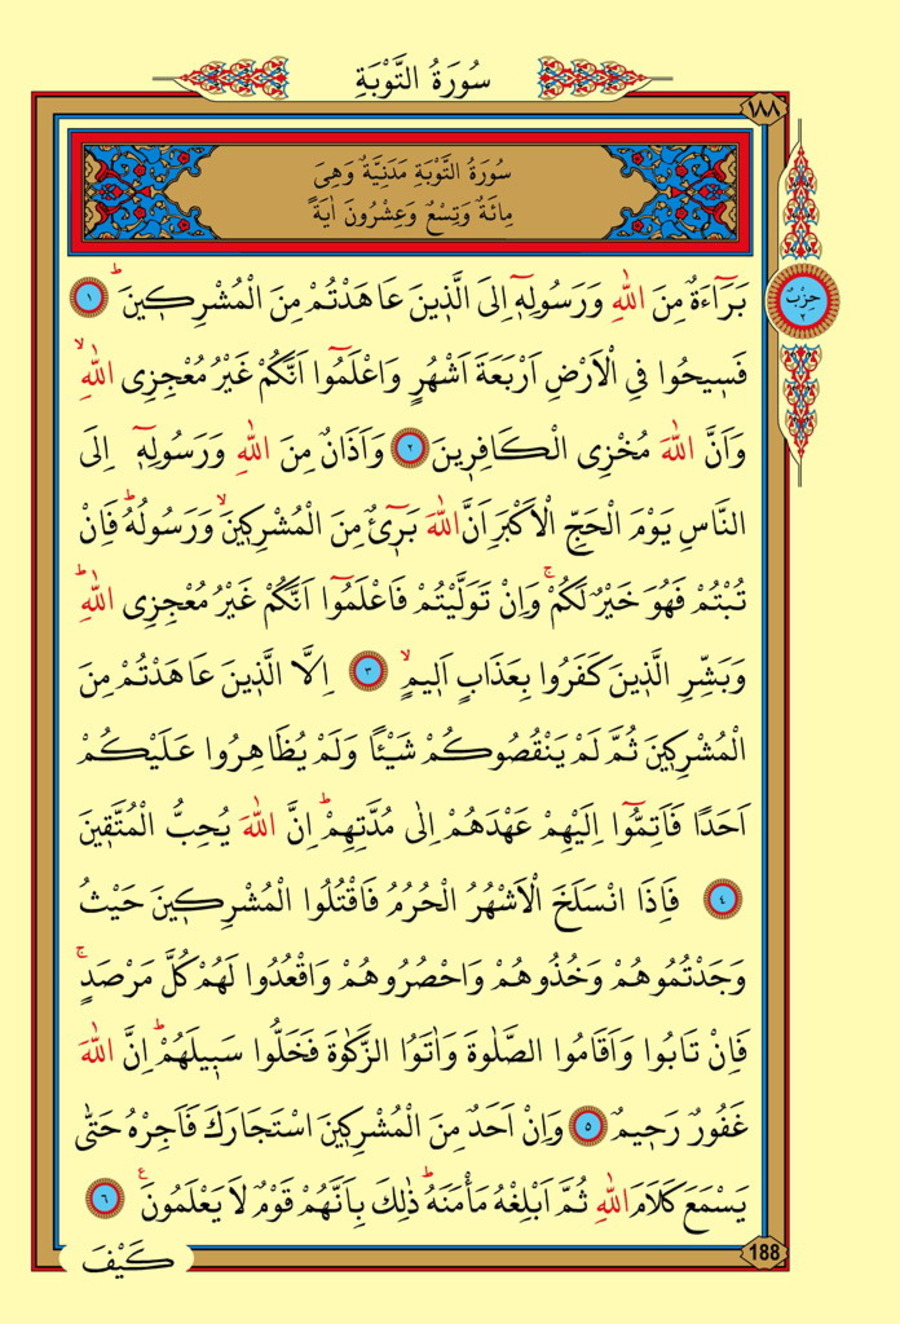 سُورَةُ التَّوْبَةِ
١٨٨
سُورَةُ التَّوْبَةِ مَدَنِيَّةٌ وَهِىَ
مِائَةٌ وَتِسْعٌ وَعِشْرُونَ اٰيَةً
حِزْبٌ
٢
بَرَٓاءَةٌ مِنَ اللّٰهِ وَرَسُولِه۪ٓ اِلَى الَّذ۪ينَ عَاهَدْتُمْ مِنَ الْمُشْرِك۪ينَۜ ١
فَس۪يحُوا فِي الْاَرْضِ اَرْبَعَةَ اَشْهُرٍ وَاعْلَمُٓوا اَنَّكُمْ غَيْرُ مُعْجِزِى اللّٰهِۙ
وَاَنَّ اللّٰهَ مُخْزِى الْكَافِر۪ينَ ٢ وَاَذَانٌ مِنَ اللّٰهِ وَرَسُولِه۪ٓ اِلَى
النَّاسِ يَوْمَ الْحَجِّ الْاَكْبَرِ اَنَّ اللّٰهَ بَر۪ٓيءٌ مِنَ الْمُشْرِك۪ينَۙ وَرَسُولُهُۜ فَاِنْ
تُبْتُمْ فَهُوَ خَيْرٌ لَكُمْۚ وَاِنْ تَوَلَّيْتُمْ فَاعْلَمُٓوا اَنَّكُمْ غَيْرُ مُعْجِزِى اللّٰهِۜ
وَبَشِّرِ الَّذ۪ينَ كَفَرُوا بِعَذَابٍ اَل۪يمٍۙ ٣ اِلَّا الَّذ۪ينَ عَاهَدْتُمْ مِنَ
الْمُشْرِك۪ينَ ثُمَّ لَمْ يَنْقُصُوكُمْ شَيْـًٔا وَلَمْ يُظَاهِرُوا عَلَيْكُمْ
اَحَدًا فَاَتِمُّٓوا اِلَيْهِمْ عَهْدَهُمْ اِلٰى مُدَّتِهِمْۜ اِنَّ اللّٰهَ يُحِبُّ الْمُتَّق۪ينَ
٤ فَاِذَا انْسَلَخَ الْاَشْهُرُ الْحُرُمُ فَاقْتُلُوا الْمُشْرِك۪ينَ حَيْثُ
وَجَدْتُمُوهُمْ وَخُذُوهُمْ وَاحْصُرُوهُمْ وَاقْعُدُوا لَهُمْ كُلَّ مَرْصَدٍۚ
فَاِنْ تَابُوا وَاَقَامُوا الصَّلٰوةَ وَاٰتَوُا الزَّكٰوةَ فَخَلُّوا سَب۪يلَهُمْۜ اِنَّ اللّٰهَ
غَفُورٌ رَح۪يمٌ ٥ وَاِنْ اَحَدٌ مِنَ الْمُشْرِك۪ينَ اسْتَجَارَكَ فَاَجِرْهُ حَتّٰى
يَسْمَعَ كَلَامَ اللّٰهِ ثُمَّ اَبْلِغْهُ مَأْمَنَهُۜ ذٰلِكَ بِاَنَّهُمْ قَوْمٌ لَا يَعْلَمُونَ۟ ٦
188
كَيْفَ